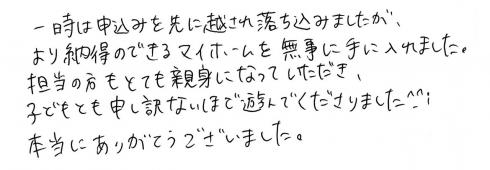 一時は申込みを先に越され落ち込みましたが、
より納得のできるマイホームを無事に手に入れました。
担当の方もとても親身になっていただき、
子どもとも申し訳ないほど遊んでくださりました^^;
本当にありがとうございました。